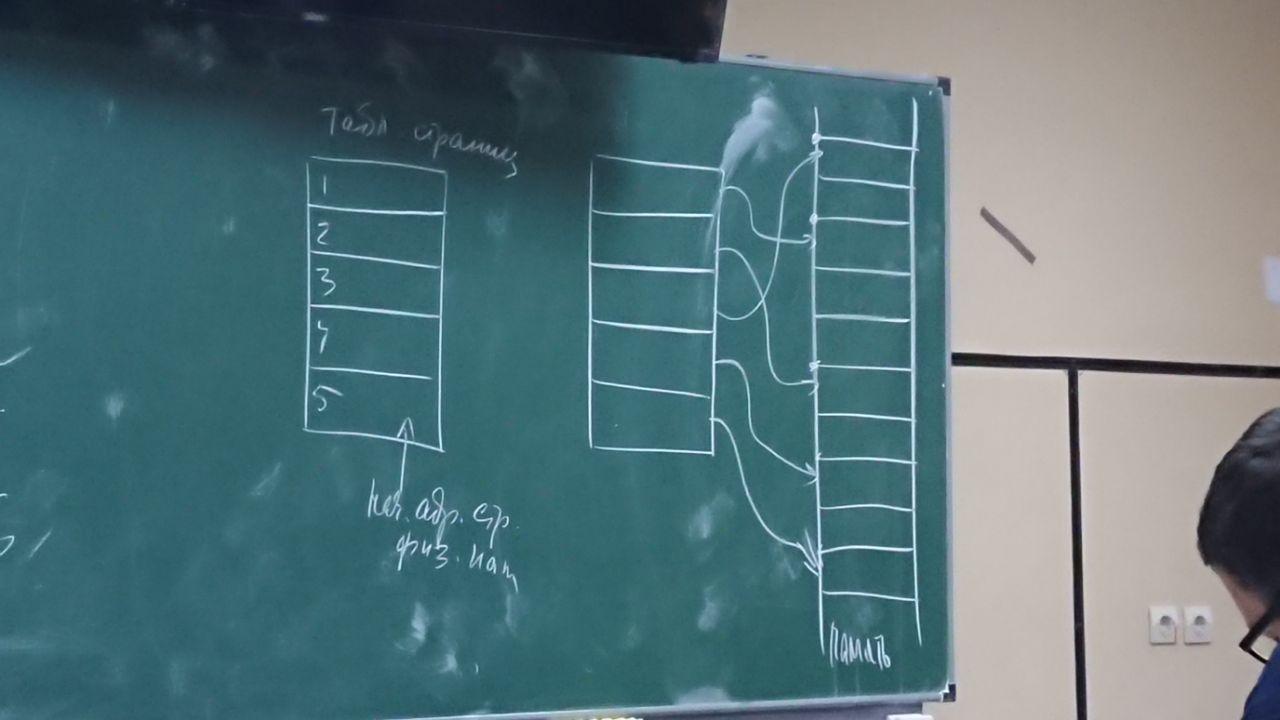 Табл страниц
1
2
3
4
5
Нач. адр. стр.
физ. пам
память